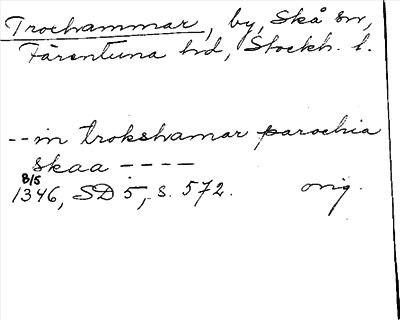 Trochammar, by, Skå sn,
Färentuna hd, Stockh. l.
-- in trokshamar parochia
skaa ----
8/5
1346, SD 5, s. 572. orig.